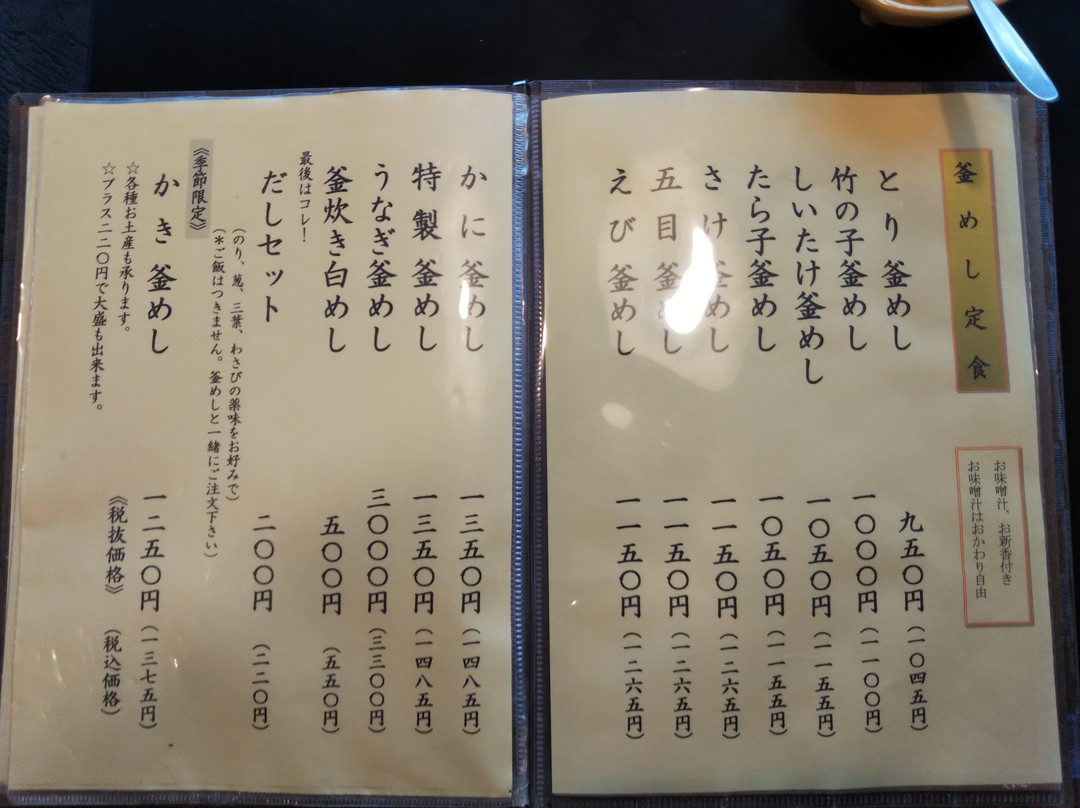 釜めし定食
お味噌汁、お新香付き
お味噌汁はおかわり自由
とり釜めし 九五〇円(一〇四五円)
竹の子釜めし 一〇〇〇円(一一〇〇円)
しいたけ釜めし 一〇五〇円(一一五五円)
たら子釜めし 一〇五〇円(一一五五円)
さけ釜めし 一一五〇円(一二六五円)
五目釜めし 一一五〇円(一二六五円)
えび釜めし 一一五〇円(一二六五円)
かに釜めし 一三五〇円(一四八五円)
特製釜めし 一三五〇円(一四八五円)
うなぎ釜めし 三〇〇〇円(三三〇〇円)
釜炊き白めし 五〇〇円(五五〇円)
最後はコレ!
だしセット 二〇〇円(二二〇円)
(のり、葱、三葉、わさびの薬味をお好みで)
(*ご飯はつきません。釜めしと一緒にご注文下さい)
《季節限定》
かき釜めし 一二五〇円(一三七五円)
☆各種お土産も承ります。
☆プラス二二〇円で大盛も出来ます。
《税抜価格》(税込価格)